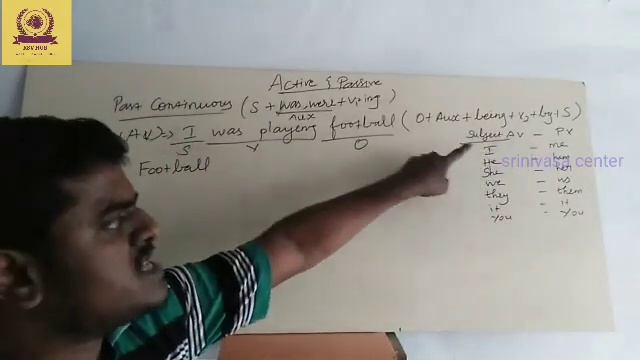 RSV HUB
Active & Passive
Past Continuous (S + was, were + V1 ing)
Aux
(AV) => I was playing football (O + Aux + being + V3 + by + S)
S V O
Football
Subject AV - PV
I - me
He - him
srinivasa center
She - her
we - us
they - them
it - it
You - You